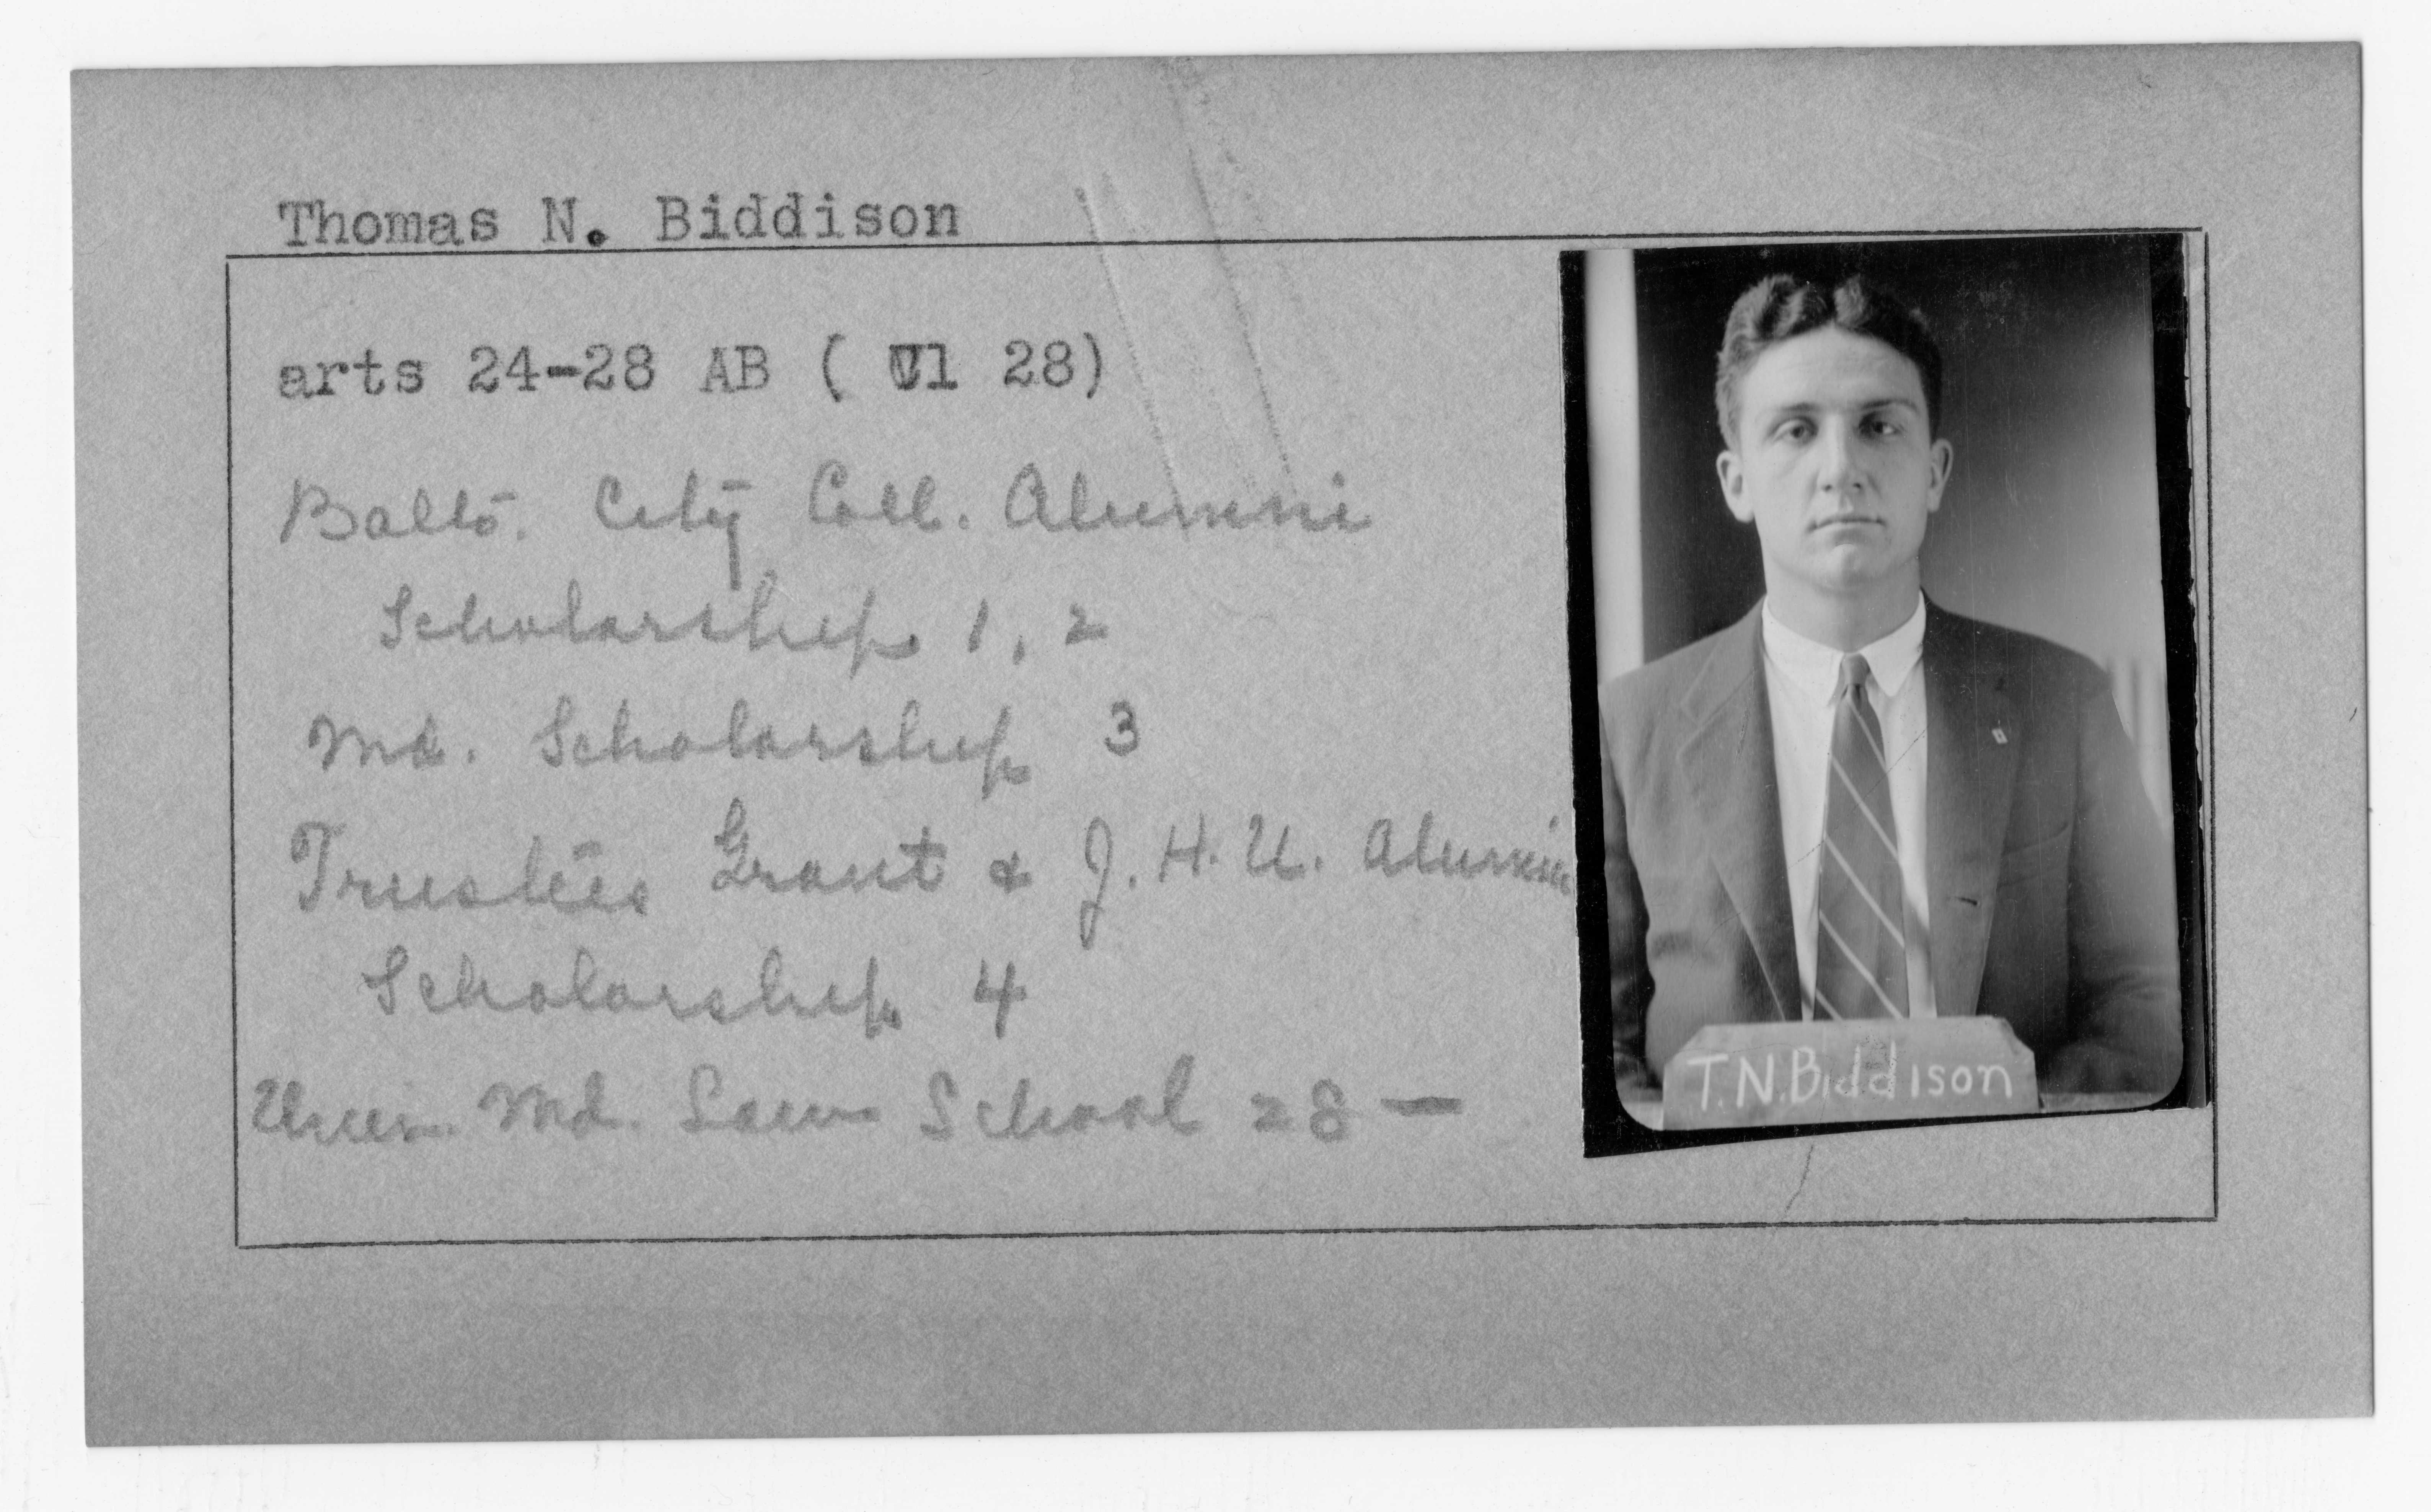 Thomas N. Biddison
arts 24-28 AB ( Vl 28)
Balto. City Coll. Alumni
Scholarship 1, 2
Md. Scholarship 3
Trustees Grant & J. H. U. Alumni
Scholarship 4
Univ. Md. Law School 28 —
T.N.Biddison